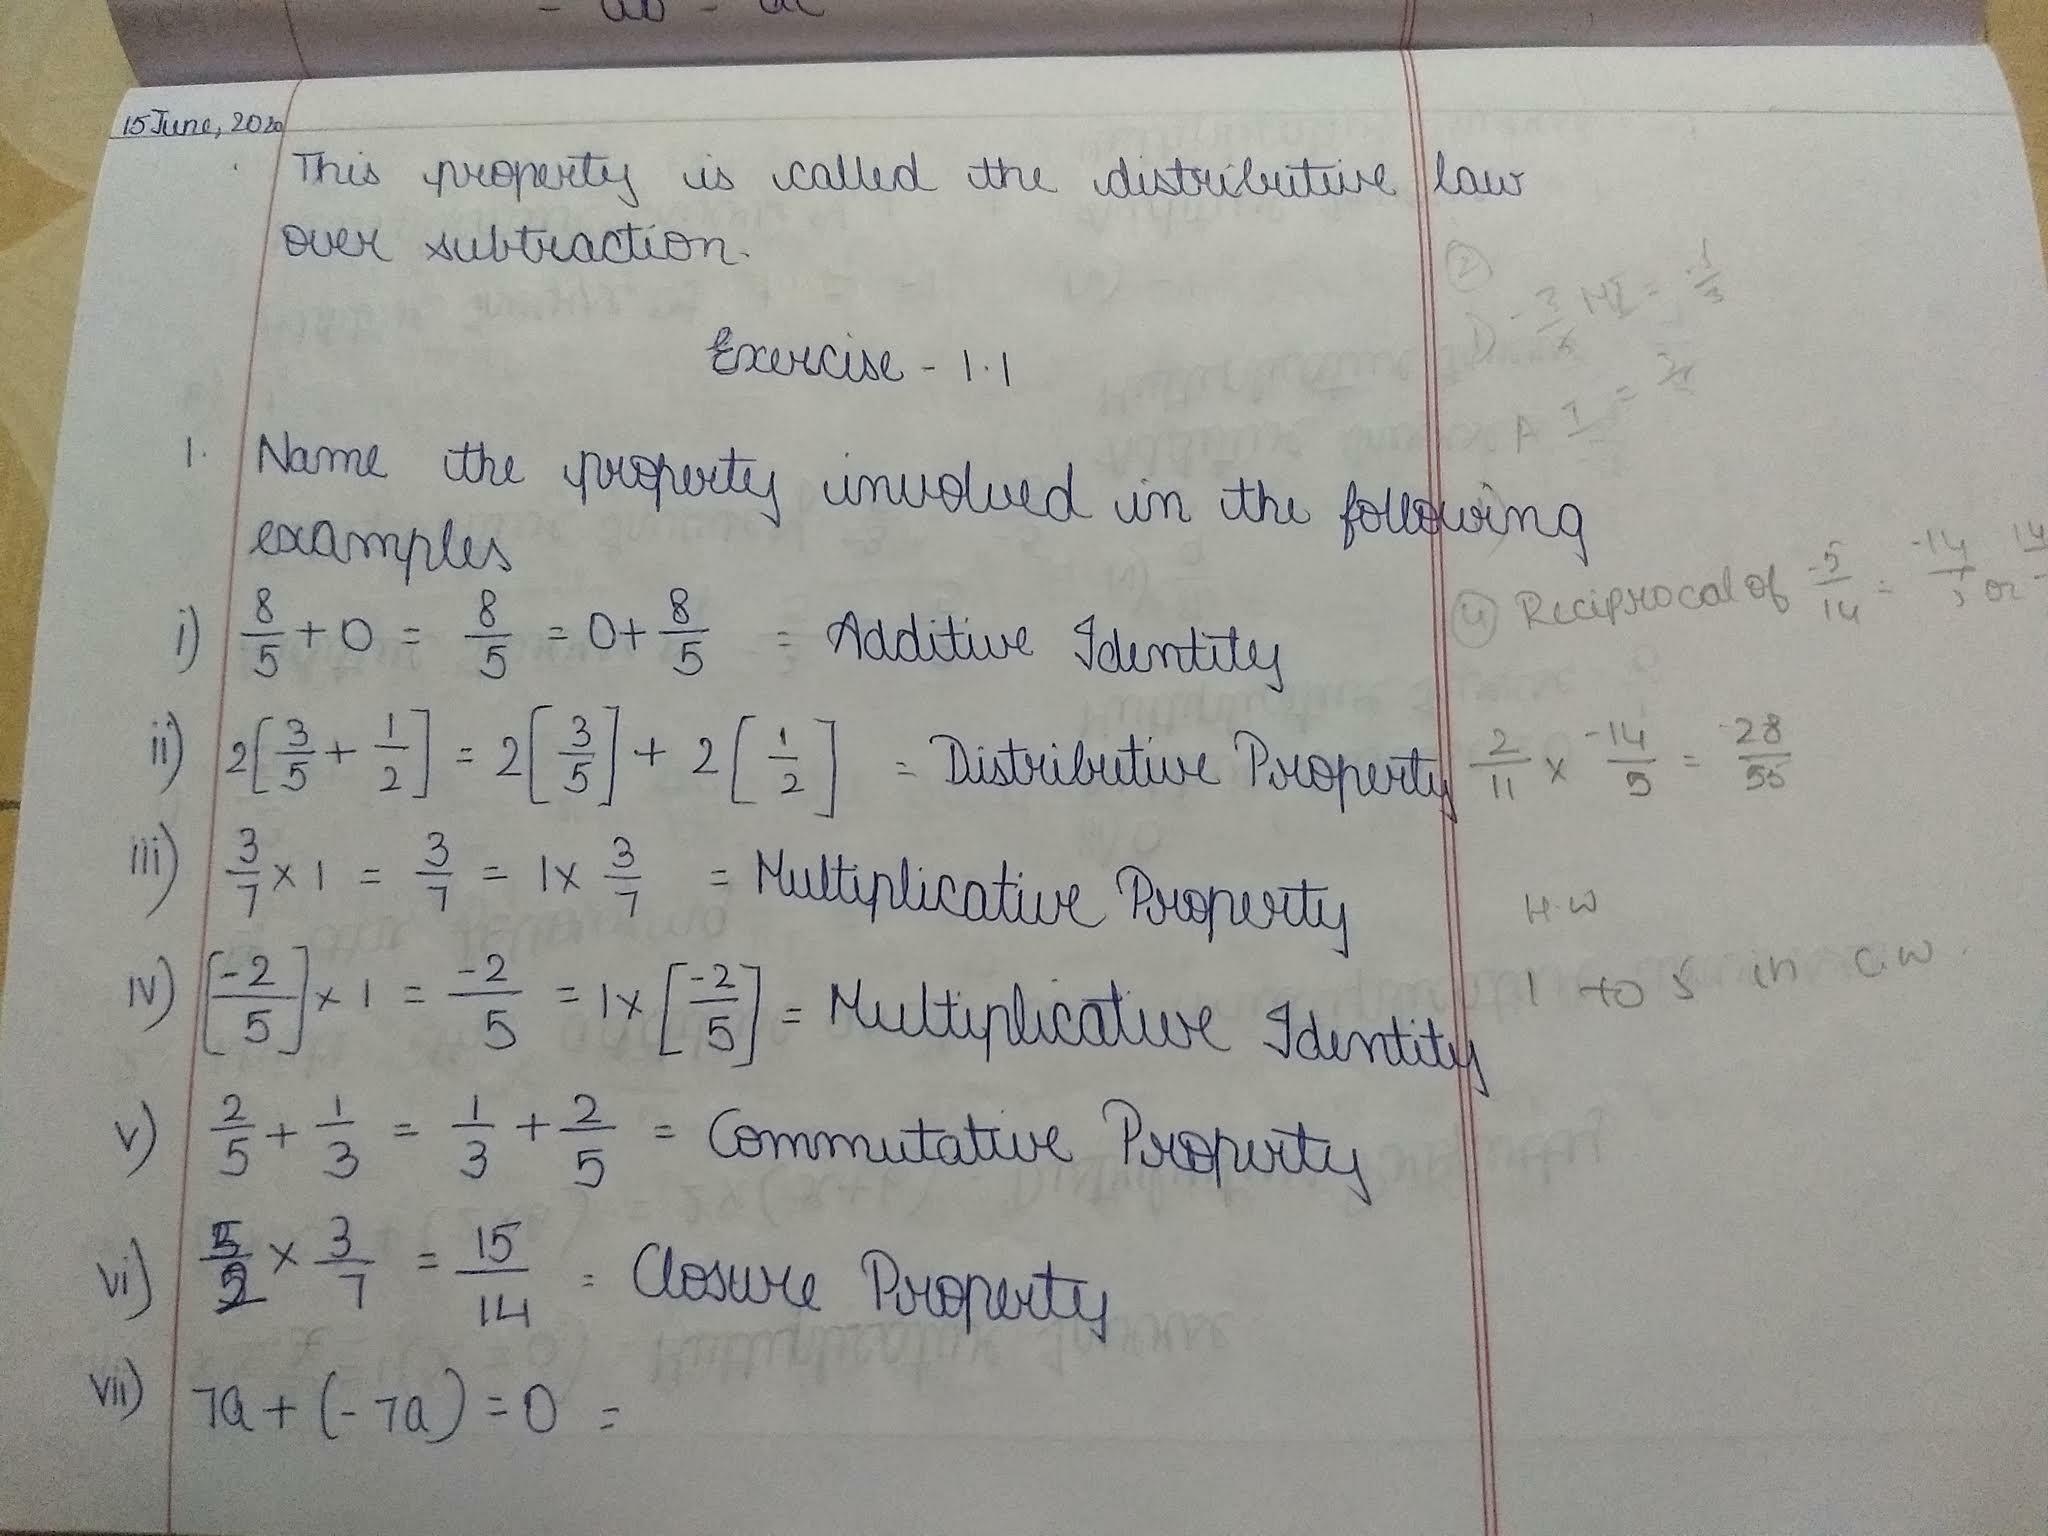 = ab - ac
15 June, 2020
This property is called the distributive law
over subtraction.
Exercise - 1.1
1. Name the property involved in the following
examples
i) 8/5 + 0 = 8/5 = 0 + 8/5 = Additive Identity
ii) 2[3/5 + 1/2] = 2[3/5] + 2[1/2] = Distributive Property
iii) 3/7 × 1 = 3/7 = 1 × 3/7 = Multiplicative Property
iv) [-2/5] × 1 = -2/5 = 1 × [-2/5] = Multiplicative Identity
v) 2/5 + 1/3 = 1/3 + 2/5 = Commutative Property
vi) 5/2 × 3/7 = 15/14 = Closure Property
vii) 7a + (-7a) = 0 =
②
④ Reciprocal of -5/14 = -14/5 or 14
2/11 × -14/5 = -28/55
H.W
1 to 5 in C.W.